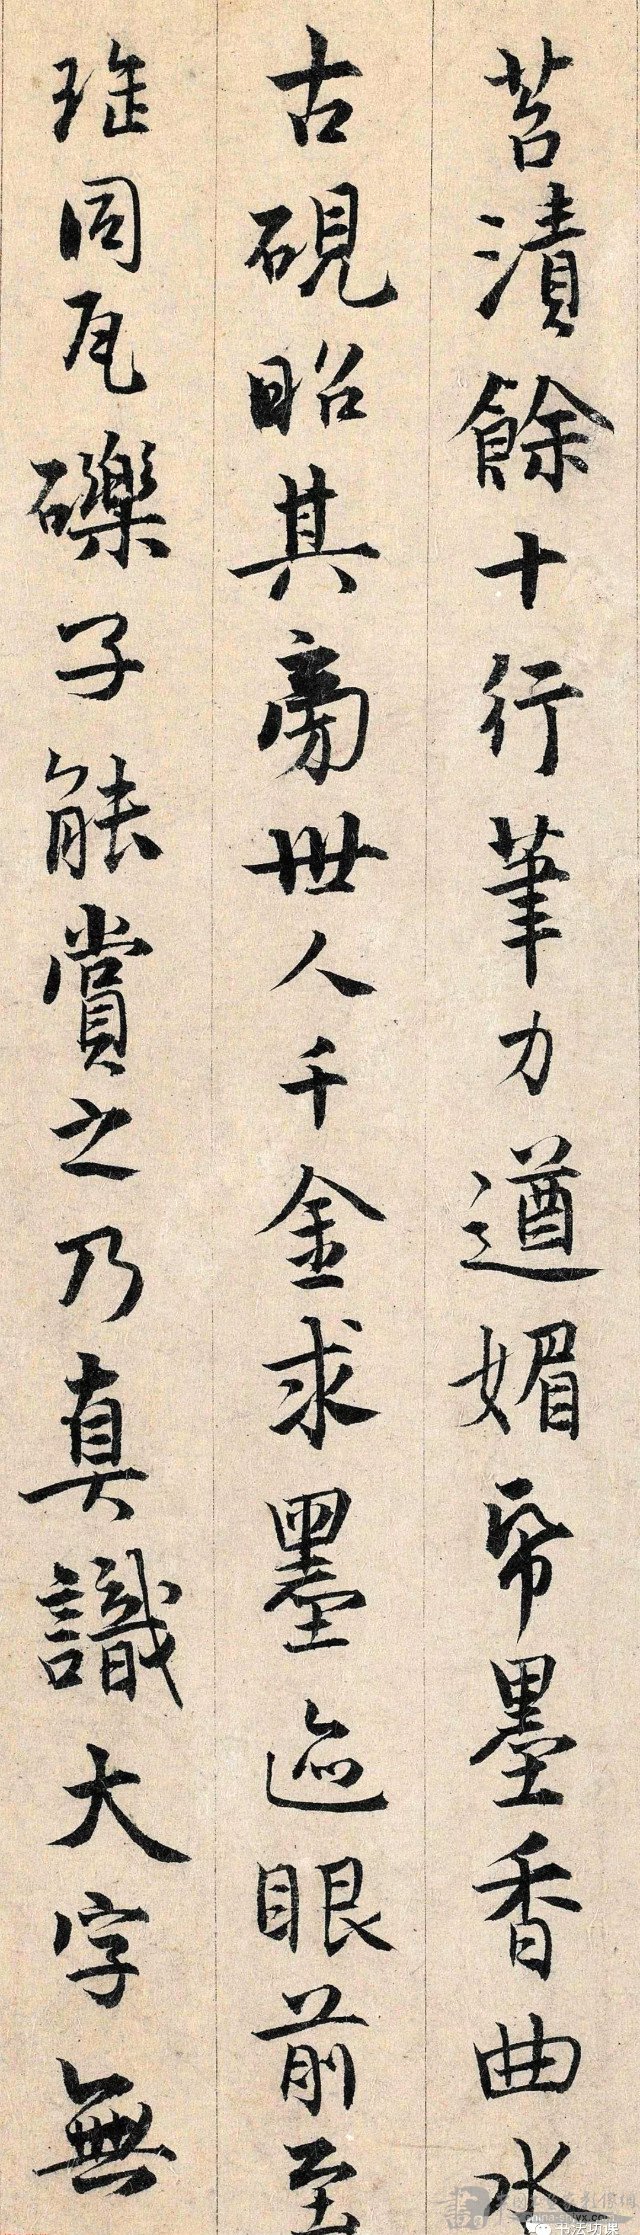 苔漬餘十行筆力遒媚帋墨香曲水
古硯昭其旁世人千金求墨迹眼前至
珤同瓦礫子能賞之乃真識大字無
书法坊课